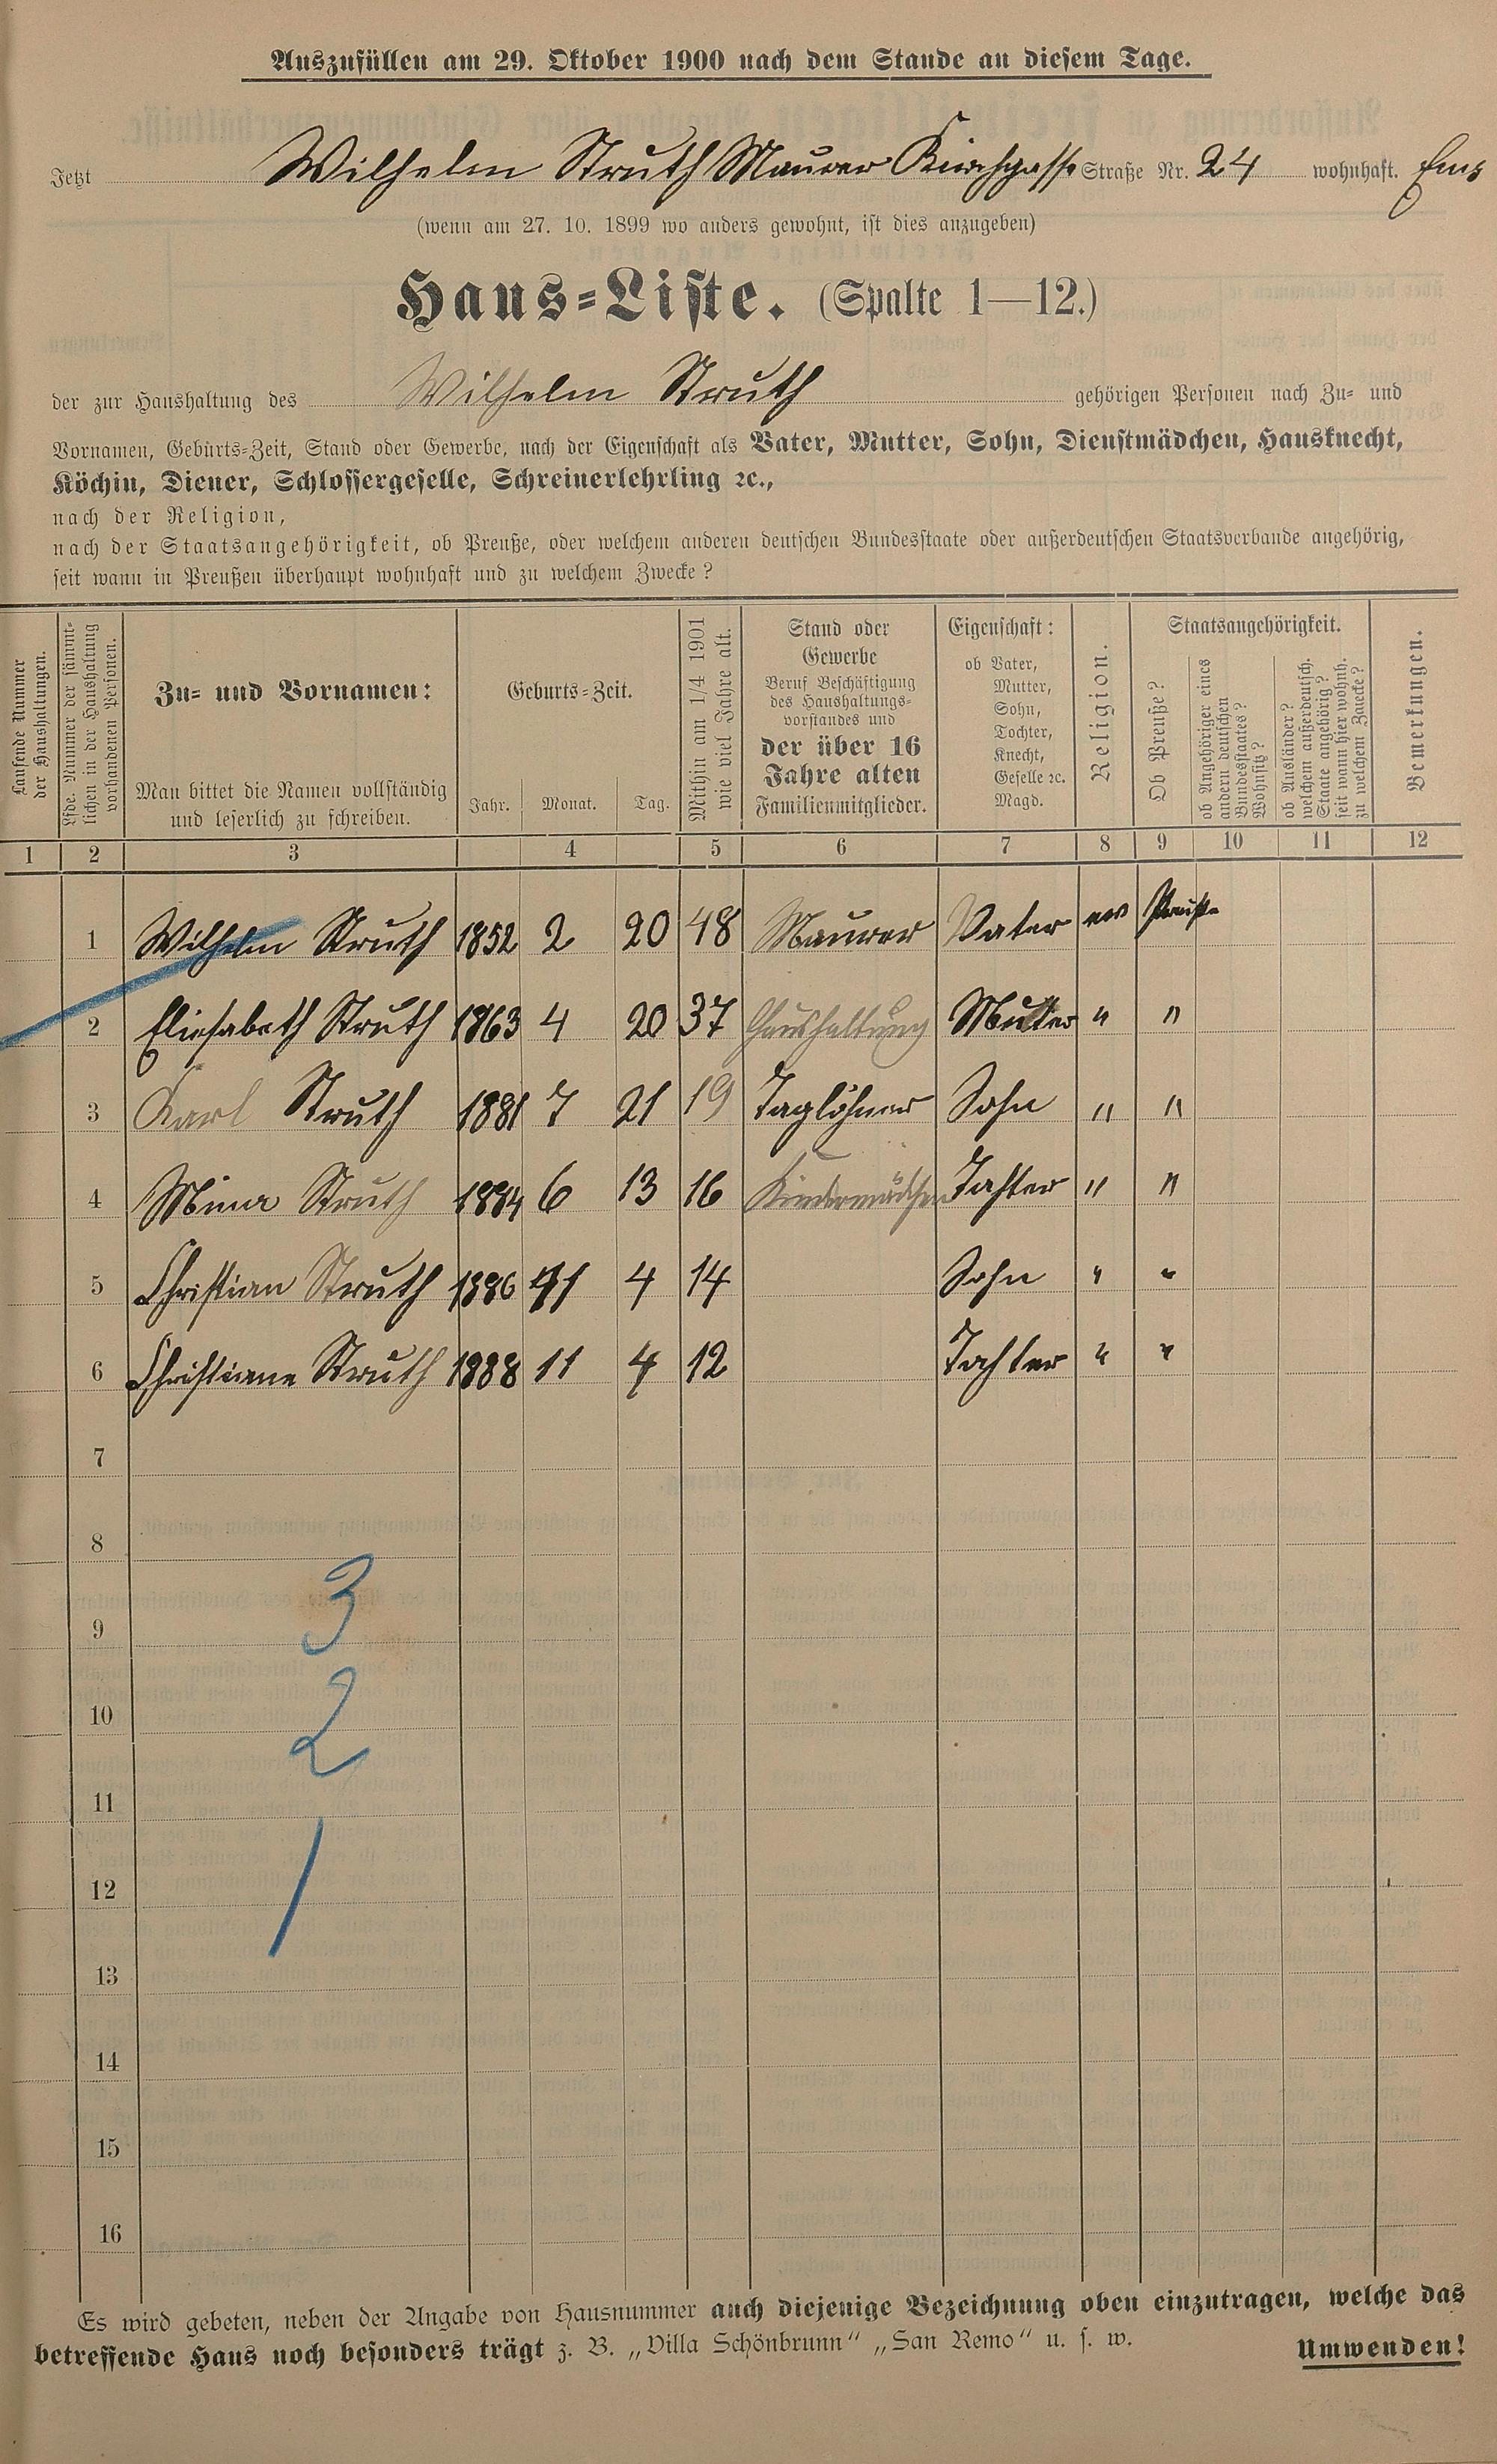 Auszufüllen am 29. Oktober 1900 nach dem Stande an diesem Tage.
Jetzt Wilhelm Struth Maurer Kirchgasse Straße Nr. 24 wohnhaft. Ems
(wenn am 27. 10. 1899 wo anders gewohnt, ist dies anzugeben)
Haus-Liste. (Spalte 1—12.)
der zur Haushaltung des Wilhelm Struth gehörigen Personen nach Zu- und
Vornamen, Geburts-Zeit, Stand oder Gewerbe, nach der Eigenschaft als Vater, Mutter, Sohn, Dienstmädchen, Hausknecht,
Köchin, Diener, Schlossergeselle, Schreinerlehrling ꝛc.,
nach der Religion,
nach der Staatsangehörigkeit, ob Preuße, oder welchem anderen deutschen Bundesstaate oder außerdeutschen Staatsverbande angehörig,
seit wann in Preußen überhaupt wohnhaft und zu welchem Zwecke?
Laufende Nummer
der Haushaltungen.
Lfde. Nummer der sämmt-
lichen in der Haushaltung
vorhandenen Personen.
Zu- und Vornamen:
Man bittet die Namen vollständig
und leserlich zu schreiben.
Geburts-Zeit.
Jahr. Monat. Tag.
Mithin am 1/4 1901
wie viel Jahre alt.
Stand oder
Gewerbe
Beruf Beschäftigung
des Haushaltungs-
vorstandes und
der über 16
Jahre alten
Familienmitglieder.
Eigenschaft:
ob Vater,
Mutter,
Sohn,
Tochter,
Knecht,
Geselle ꝛc.
Magd.
Religion.
Staatsangehörigkeit.
Ob Preuße?
ob Angehöriger eines
andern deutschen
Bundesstaates?
Wohnsitz?
ob Ausländer?
welchem außerdeutsch.
Staate angehörig?
seit wann hier wohnh.
zu welchem Zwecke?
Bemerkungen.
1 2 3 4 5 6 7 8 9 10 11 12
1 Wilhelm Struth 1852 2 20 48 Maurer Vater ev Preuße
2 Eliesabeth Struth 1863 4 20 37 Haushaltung Mutter " "
3 Karl Struth 1881 7 21 19 Taglöhner Sohn " "
4 Mina Struth 1884 6 13 16 Kindermädchen Tochter " "
5 Christian Struth 1886 11 4 14 Sohn " "
6 Christiane Struth 1888 11 4 12 Tochter " "
7
8
3
9
2
10
11
1
12
13
14
15
16
Es wird gebeten, neben der Angabe von Hausnummer auch diejenige Bezeichnung oben einzutragen, welche das
betreffende Haus noch besonders trägt z. B. „Villa Schönbrunn“ „San Remo“ u. s. w. Umwenden!